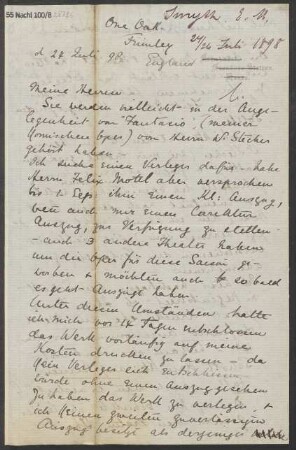 55 Nachl 100/B
Smyth E. M.
One Oak.
Frimley 24/26 Juli 1898
d. 22 Juli 98 England
Meine Herren
Sie werden vielleicht in der Ange-
legenheit von "Fantasio" (meiner
Komischen Oper) von Herrn
gehört haben.
Ich suche einen Verleger dafür – habe
Herrn Felix Motel aber versprochen
bis 1. Sept. ihm einen Kl: Auszug,
wenn auch nur einen
Auszug, zur Verfügung zu stellen
– auch 3 andere Theater haben
um die Oper für diese Saison ge-
worben + möchten auch so bald
es geht Auszüge haben
Unter diesen Umständen hatte
ich mich vor 14 Tagen entschlossen
das Werk vorläufig auf meine
Kosten drucken zu lassen – da
kein Verleger sich entschliessen
würde ohne einen Auszug gesehen
zu haben das Werk zu verlegen +
ich keinen zweiten zuverlässigen
Auszug besitze als derjenige